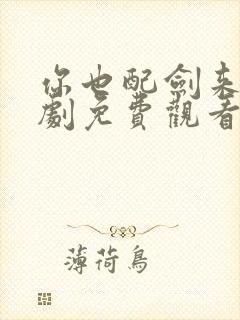 你也配劍来
劇免費觀看
薄荷鳥